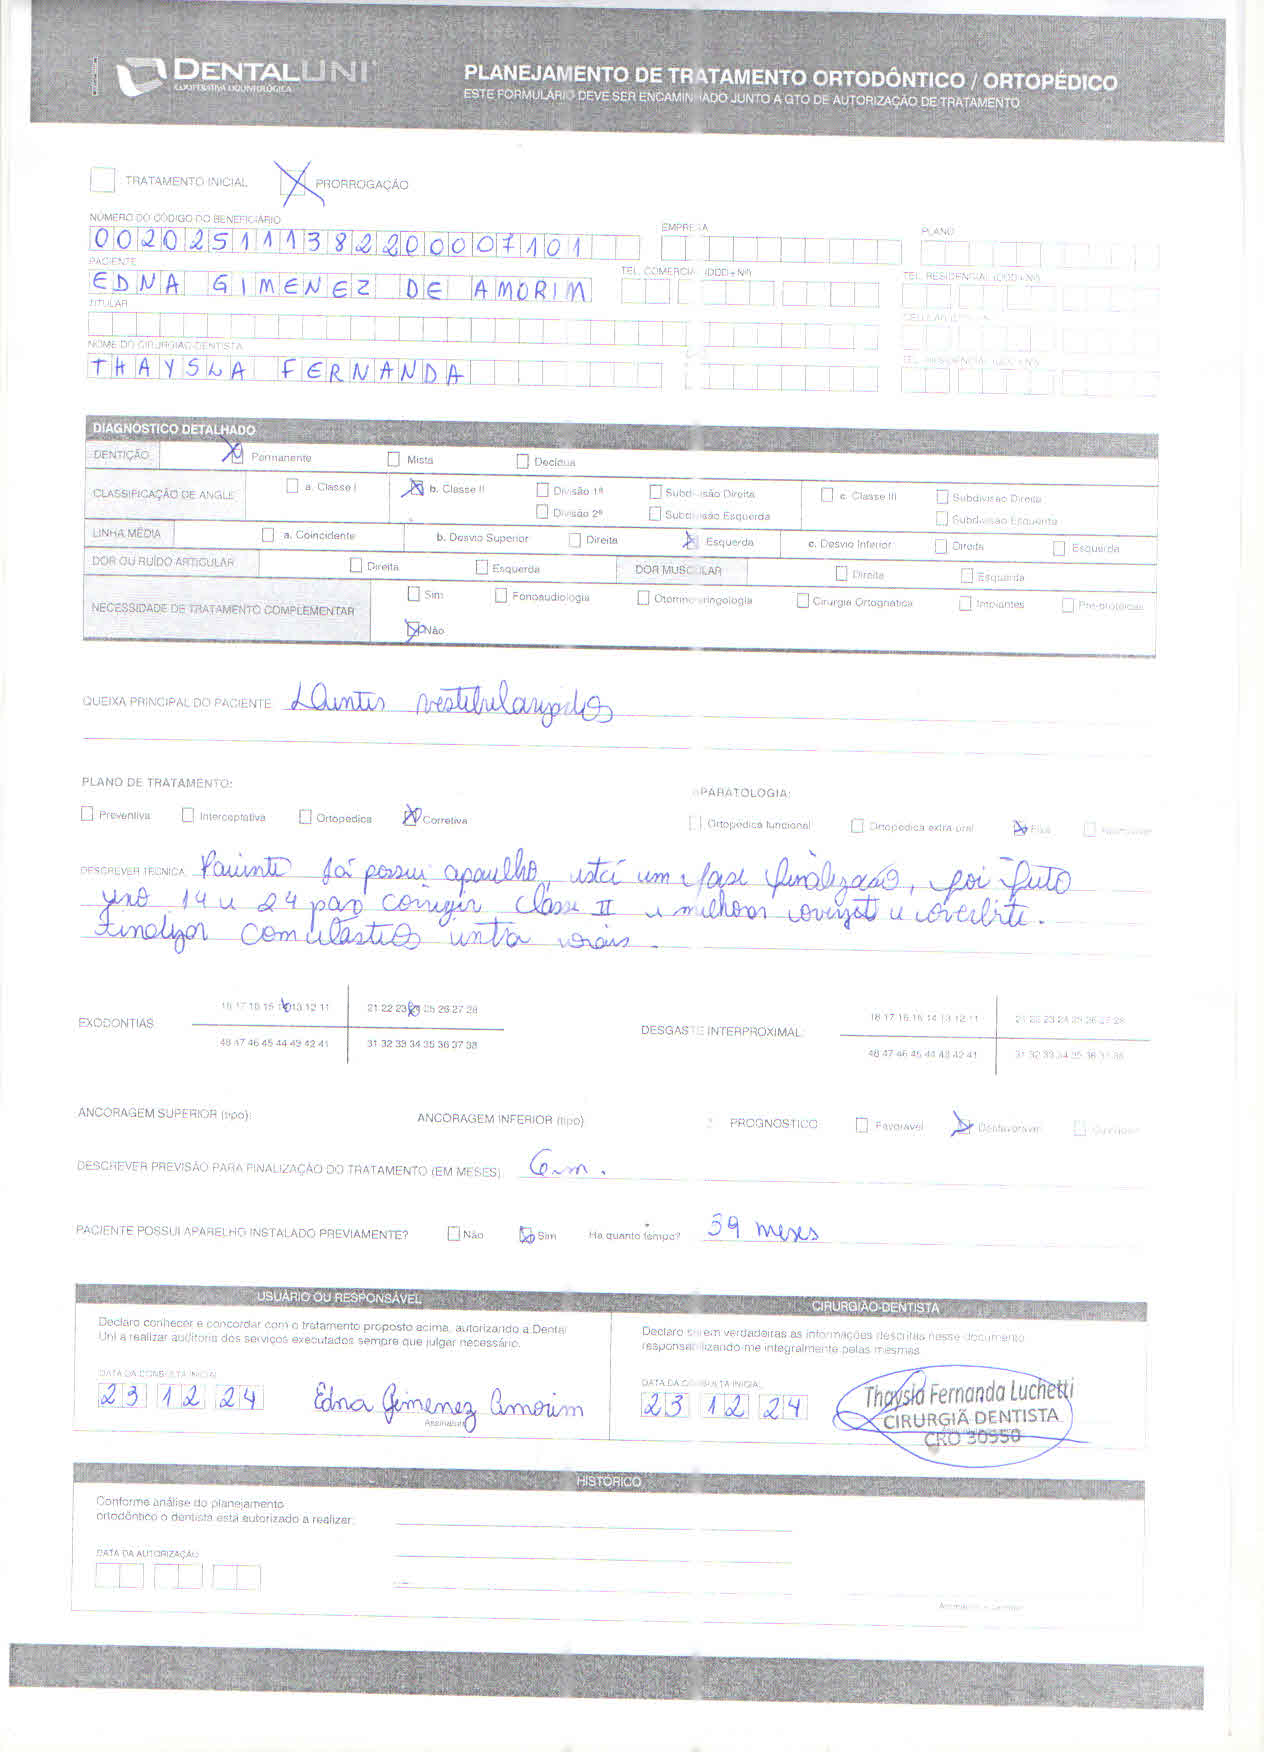 DENTALUNI
COOPERATIVA ODONTOLÓGICA
PLANEJAMENTO DE TRATAMENTO ORTODÔNTICO / ORTOPÉDICO
ESTE FORMULÁRIO DEVE SER ENCAMINHADO JUNTO A GTO DE AUTORIZAÇÃO DE TRATAMENTO
TRATAMENTO INICIAL PRORROGAÇÃO
NÚMERO DO CÓDIGO DO BENEFICIÁRIO EMPRESA PLANO
002025111382200007101
PACIENTE TEL. COMERCIAL (DDD+Nº) TEL. RESIDENCIAL (DDD+Nº)
EDNA GIMENEZ DE AMORIM
TITULAR CELULAR
NOME DO CIRURGIÃO-DENTISTA TEL. RESIDENCIAL (DDD+Nº)
THAYSLA FERNANDA
DIAGNÓSTICO DETALHADO
DENTIÇÃO Permanente Mista Decídua
CLASSIFICAÇÃO DE ANGLE a. Classe I b. Classe II Divisão 1ª Subdivisão Direita c. Classe III Subdivisão Direita
Divisão 2ª Subdivisão Esquerda Subdivisão Esquerda
LINHA MÉDIA a. Coincidente b. Desvio Superior Direita Esquerda c. Desvio Inferior Direita Esquerda
DOR OU RUÍDO ARTICULAR Direita Esquerda DOR MUSCULAR Direita Esquerda
NECESSIDADE DE TRATAMENTO COMPLEMENTAR Sim Fonoaudiologia Otorrinolaringologia Cirurgia Ortognática Implantes Pré-protéticas
Não
QUEIXA PRINCIPAL DO PACIENTE: Dentes vestibularizados
PLANO DE TRATAMENTO: APARATOLOGIA:
Preventiva Interceptativa Ortopédica Corretiva Ortopédica funcional Ortopédica extra oral Fixa
DESCREVER TÉCNICA: Paciente já possui aparelho, está em fase finalização, foi feito
exo 14 e 24 para corrigir classe II e melhorar overjet e overbite.
Finalizar com elásticos intra orais.
EXODONTIAS 18 17 16 15 14 13 12 11 21 22 23 24 25 26 27 28
48 47 46 45 44 43 42 41 31 32 33 34 35 36 37 38
DESGASTE INTERPROXIMAL: 18 17 16 15 14 13 12 11 21 22 23 24 25 26 27 28
48 47 46 45 44 43 42 41 31 32 33 34 35 36 37 38
ANCORAGEM SUPERIOR (tipo): ANCORAGEM INFERIOR (tipo) PROGNÓSTICO Favorável Desfavorável Duvidoso
DESCREVER PREVISÃO PARA FINALIZAÇÃO DO TRATAMENTO (EM MESES): 6 m.
PACIENTE POSSUI APARELHO INSTALADO PREVIAMENTE? Não Sim Há quanto tempo? 39 meses
USUÁRIO OU RESPONSÁVEL
Declaro conhecer e concordar com o tratamento proposto acima, autorizando a Dental
Uni a realizar auditoria dos serviços executados sempre que julgar necessário.
DATA DA CONSULTA INICIAL
23 12 24 Edna Gimenez Amorim
Assinatura
CIRURGIÃO-DENTISTA
Declaro serem verdadeiras as informações descritas nesse documento
responsabilizando-me integralmente pelas mesmas
DATA DA CONSULTA INICIAL
23 12 24
Thaysla Fernanda Luchetti
CIRURGIÃ DENTISTA
CRO 30550
HISTÓRICO
Conforme análise do planejamento
ortodôntico o dentista está autorizado a realizar:
DATA DA AUTORIZAÇÃO
Assinatura e Carimbo